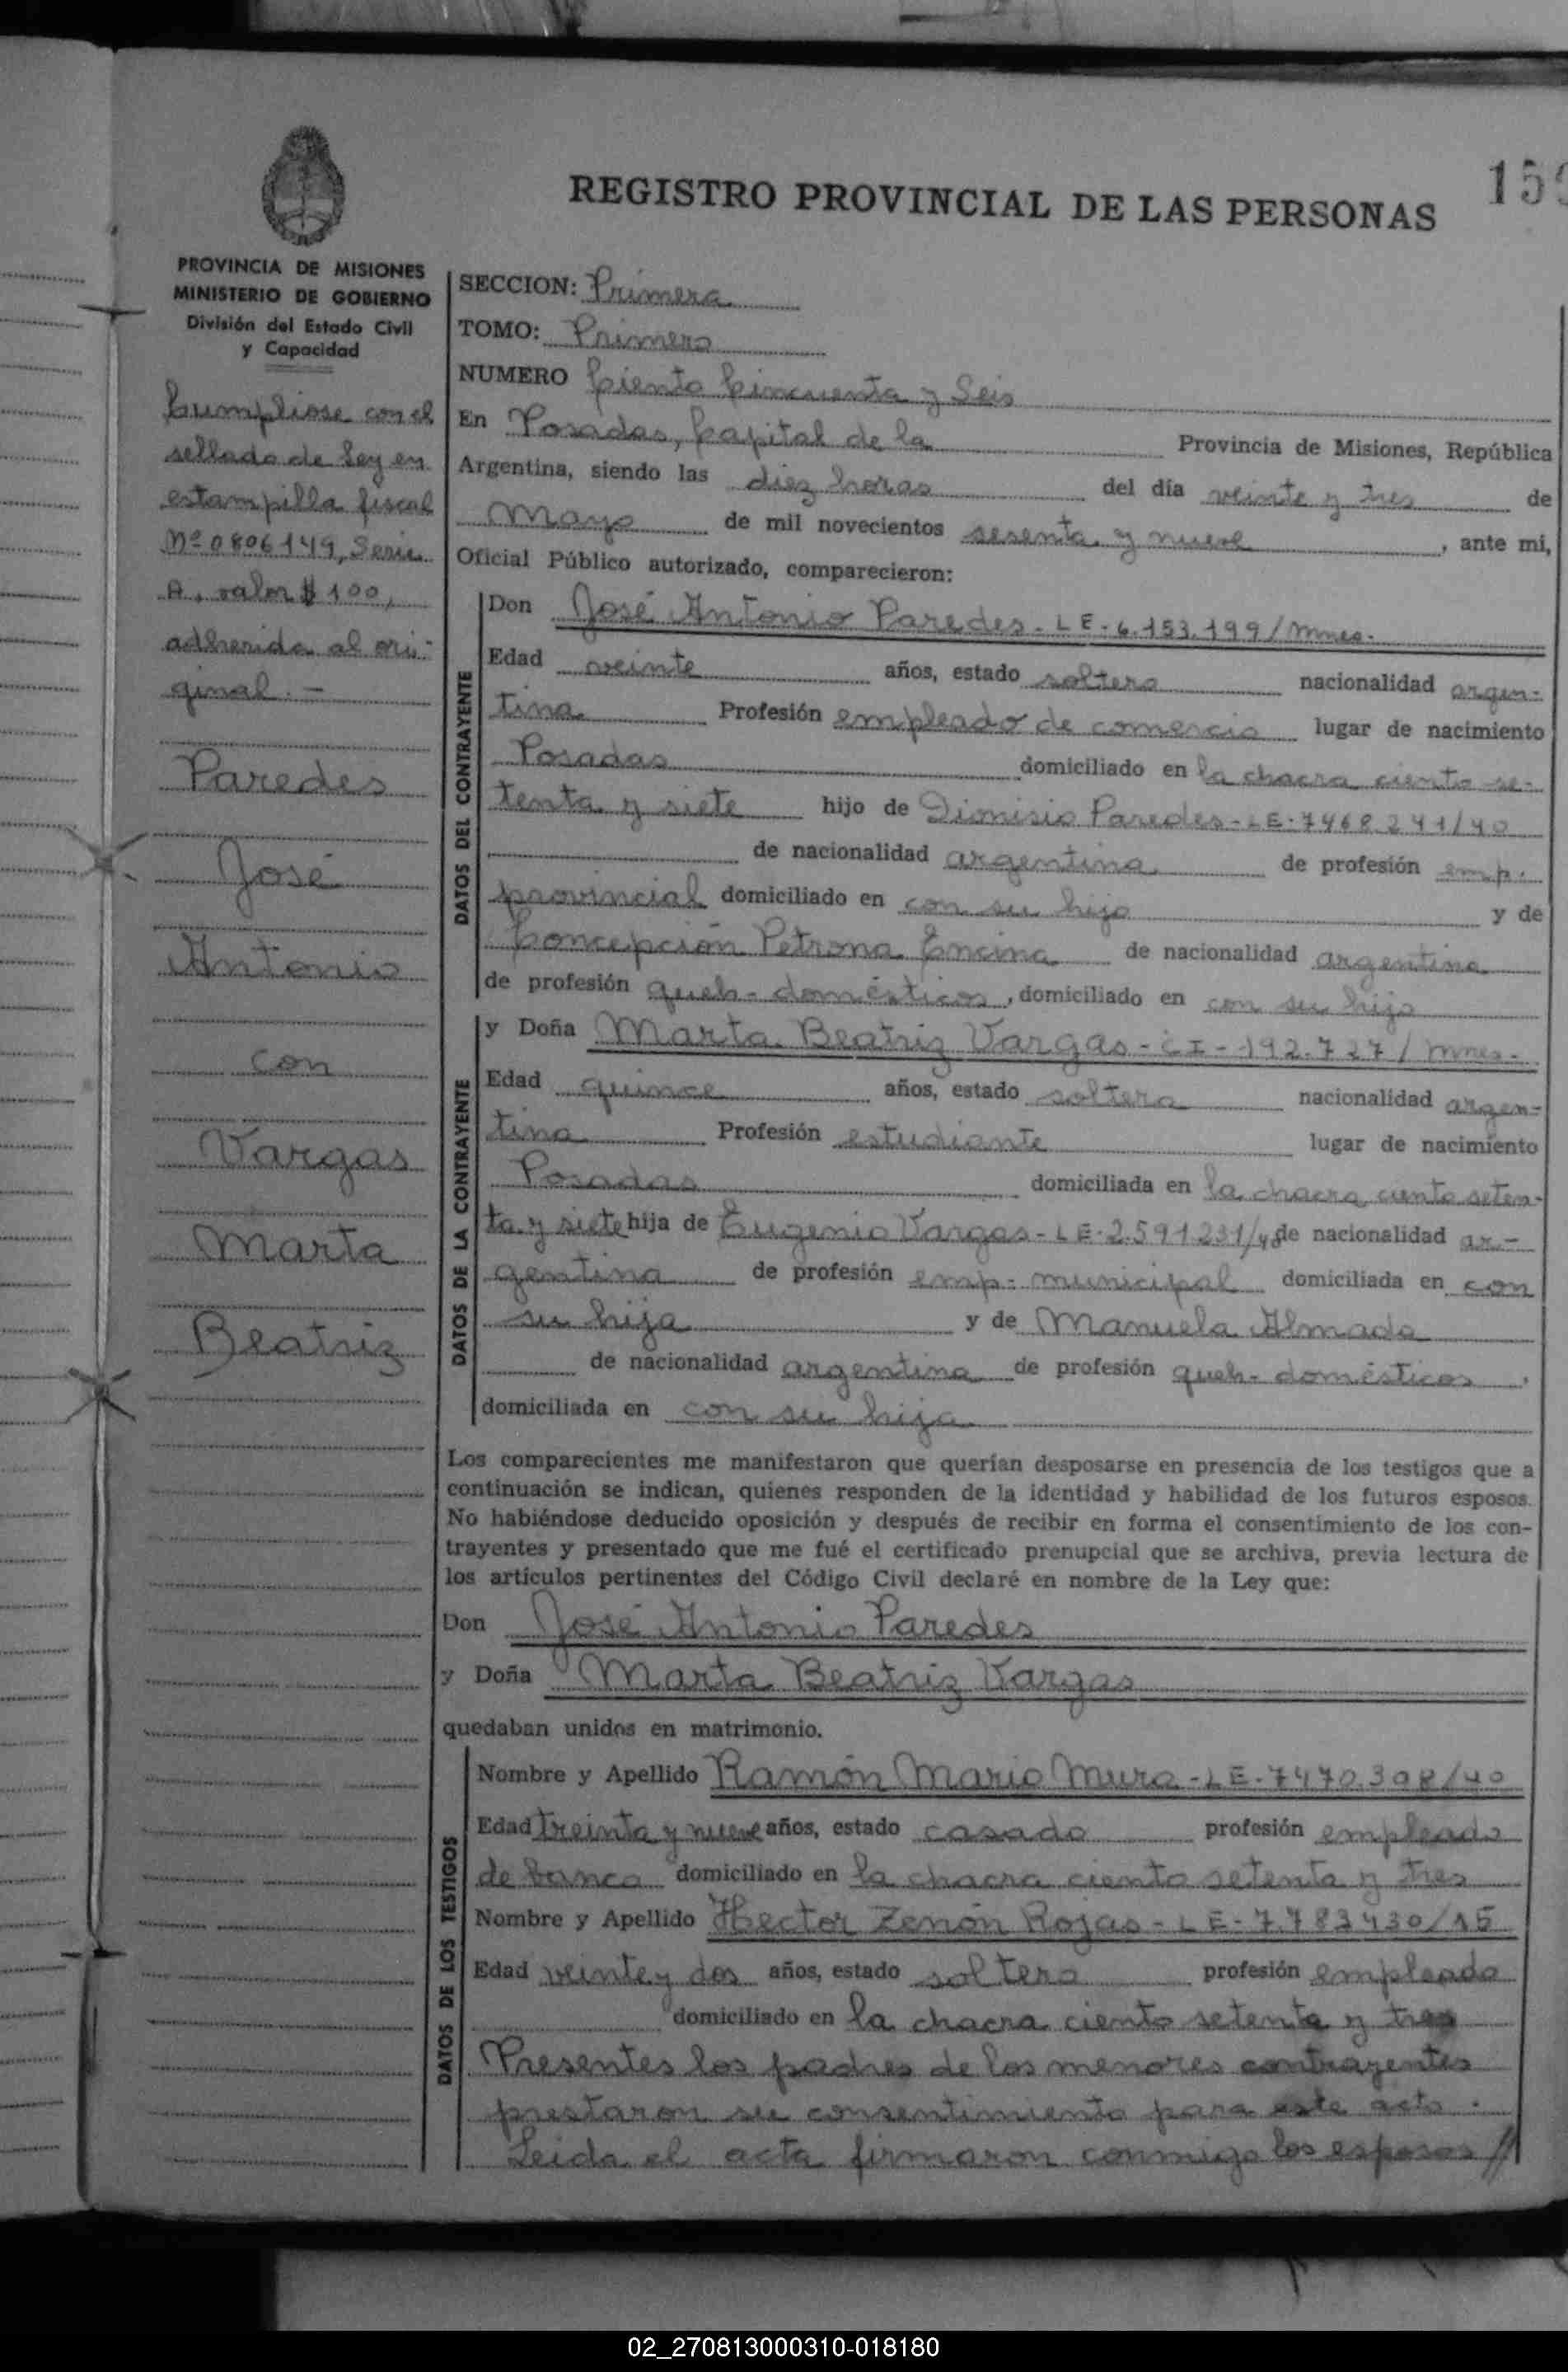 REGISTRO PROVINCIAL DE LAS PERSONAS
159
PROVINCIA DE MISIONES
MINISTERIO DE GOBIERNO
División del Estado Civil
y Capacidad
Cumpliose con el
sellado de Ley en
estampilla fiscal
Nº 0806149, Serie
A, valor $ 100,
adherida al ori-
ginal.-
Paredes
José
Antonio
con
Vargas
Marta
Beatriz
SECCION: Primera
TOMO: Primero
NUMERO Ciento Cincuenta y Seis
En Posadas, Capital de la Provincia de Misiones, República
Argentina, siendo las diez horas del día veinte y tres de
Mayo de mil novecientos sesenta y nueve, ante mi,
Oficial Público autorizado, comparecieron:
DATOS DEL CONTRAYENTE
Don José Antonio Paredes - LE - 6.153.199/Mnes.
Edad veinte años, estado soltero nacionalidad argen-
tina Profesión empleado de comercio lugar de nacimiento
Posadas domiciliado en la chacra ciento se-
tenta y siete hijo de Dionisio Paredes - LE - 7468241/40
de nacionalidad argentina de profesión emp.
provincial domiciliado en con su hijo y de
Concepción Petrona Encina de nacionalidad argentina
de profesión queh- domésticos, domiciliado en con su hijo
DATOS DE LA CONTRAYENTE
y Doña Marta Beatriz Vargas - CI - 192.727/Mnes-
Edad quince años, estado soltera nacionalidad argen-
tina Profesión estudiante lugar de nacimiento
Posadas domiciliada en la chacra ciento seten-
ta y siete hija de Eugenio Vargas - LE - 2.591.231/40 de nacionalidad ar-
gentina de profesión emp- municipal domiciliada en con
su hija y de Manuela Almada
de nacionalidad argentina de profesión queh- domésticos,
domiciliada en con su hija
Los comparecientes me manifestaron que querían desposarse en presencia de los testigos que a
continuación se indican, quienes responden de la identidad y habilidad de los futuros esposos.
No habiéndose deducido oposición y después de recibir en forma el consentimiento de los con-
trayentes y presentado que me fué el certificado prenupcial que se archiva, previa lectura de
los artículos pertinentes del Código Civil declaré en nombre de la Ley que:
Don José Antonio Paredes
y Doña Marta Beatriz Vargas
quedaban unidos en matrimonio.
DATOS DE LOS TESTIGOS
Nombre y Apellido Ramón Mario Mura - LE - 7470.308/40
Edad treinta y nueve años, estado casado profesión empleado
de banco domiciliado en la chacra ciento setenta y tres
Nombre y Apellido Hector Zenón Rojas - LE - 7.783430/15
Edad veinte y dos años, estado soltero profesión empleado
domiciliado en la chacra ciento setenta y tres
Presentes los padres de los menores contrayentes
prestaron su consentimiento para este acto.
Leida el acta firmaron conmigo los esposos //
02_270813000310-018180